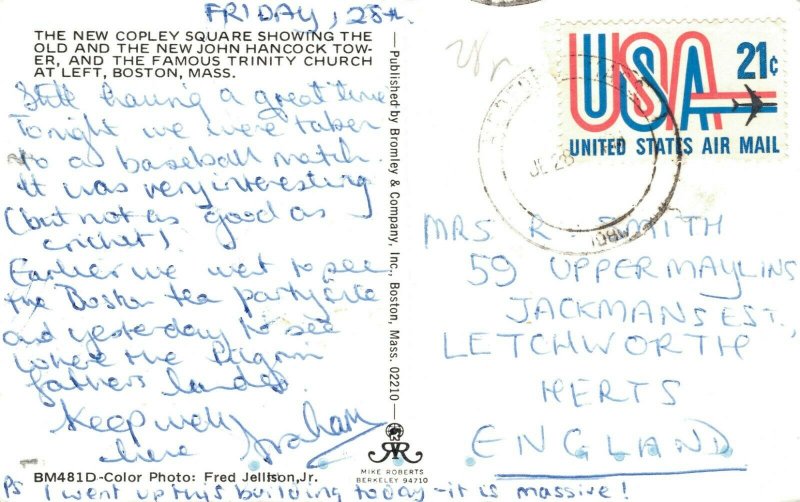 FRIDAY, 28th.
THE NEW COPLEY SQUARE SHOWING THE
OLD AND THE NEW JOHN HANCOCK TOW-
ER, AND THE FAMOUS TRINITY CHURCH
AT LEFT, BOSTON, MASS.
Still having a great time
Tonight we were taken
to a baseball match.
It was very interesting
(but not as good as
cricket)
Earlier we went to see
the Boston tea party site
and yesterday to see
where the Pilgrim
fathers landed.
Keep well
Graham
BM481D-Color Photo: Fred Jellison, Jr.
PS I went up this building today - it is massive!
Published by Bromley & Company, Inc., Boston, Mass. 02210
MIKE ROBERTS
BERKELEY 94710
USA 21c
UNITED STATES AIR MAIL
JL 28
MRS R SMITH
59 UPPER MAYLINS
JACKMANS EST.,
LETCHWORTH
HERTS
ENGLAND